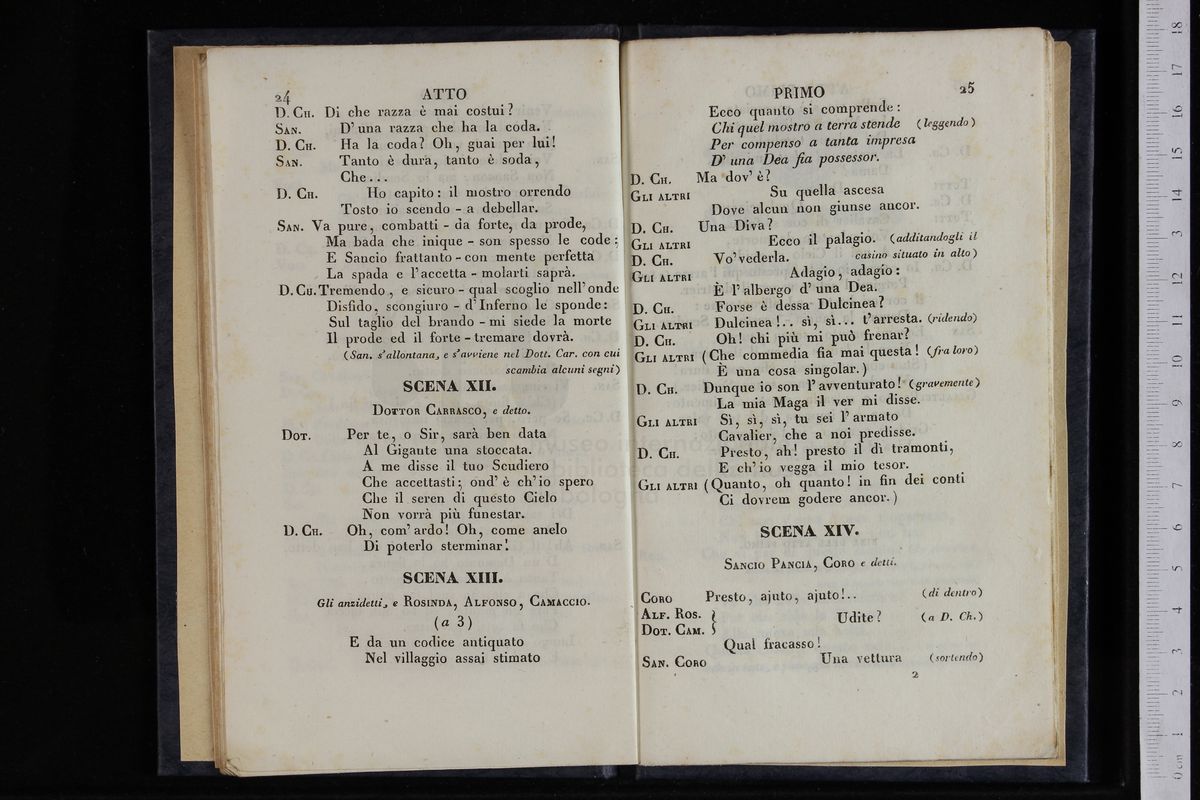 24 ATTO
D. CH. Di che razza è mai costui?
SAN. D'una razza che ha la coda.
D. CH. Ha la coda? Oh, guai per lui!
SAN. Tanto è dura, tanto è soda,
Che...
D. CH. Ho capito: il mostro orrendo
Tosto io scendo - a debellar.
SAN. Va pure, combatti - da forte, da prode,
Ma bada che inique - son spesso le code:
E Sancio frattanto - con mente perfetta
La spada e l'accetta - molarti saprà.
D. CH. Tremendo, e sicuro - qual scoglio nell'onde
Disfido, scongiuro - d'Inferno le sponde:
Sul taglio del brando - mi siede la morte
Il prode ed il forte - tremare dovrà.
(San. s'allontana, e s'avviene nel Dott. Car. con cui
scambia alcuni segni)
SCENA XII.
DOTTOR CARRASCO, e detto.
DOT. Per te, o Sir, sarà ben data
Al Gigante una stoccata.
A me disse il tuo Scudiero
Che accettasti; ond' è ch'io spero
Che il seren di questo Cielo
Non vorrà più funestar.
D. CH. Oh, com'ardo! Oh, come anelo
Di poterlo sterminar!
SCENA XIII.
Gli anzidetti, e ROSINDA, ALFONSO, CAMACCIO.
(a 3)
E da un codice antiquato
Nel villaggio assai stimato
PRIMO 25
Ecco quanto si comprende:
Chi quel mostro a terra stende (leggendo)
Per compenso a tanta impresa
D' una Dea fia possessor.
D. CH. Ma dov' è?
GLI ALTRI Su quella ascesa
Dove alcun non giunse ancor.
D. CH. Una Diva?
GLI ALTRI Ecco il palagio. (additandogli il
D. CH. Vo' vederla. casino situato in alto)
GLI ALTRI Adagio, adagio:
È l'albergo d' una Dea.
D. CH. Forse è dessa Dulcinea?
GLI ALTRI Dulcinea!.. sì, sì... t'arresta. (ridendo)
D. CH. Oh! chi più mi può frenar?
GLI ALTRI (Che commedia fia mai questa! (fra loro)
È una cosa singolar.)
D. CH. Dunque io son l'avventurato! (gravemente)
La mia Maga il ver mi disse.
GLI ALTRI Sì, sì, sì, tu sei l'armato
Cavalier, che a noi predisse.
D. CH. Presto, ah! presto il dì tramonti,
E ch'io vegga il mio tesor.
GLI ALTRI (Quanto, oh quanto! in fin dei conti
Ci dovrem godere ancor.)
SCENA XIV.
SANCIO PANCIA, CORO e detti.
CORO Presto, ajuto, ajuto!.. (di dentro)
ALF. ROS. } Udite? (a D. Ch.)
DOT. CAM.
Qual fracasso!
SAN. CORO Una vettura (sortendo)
2